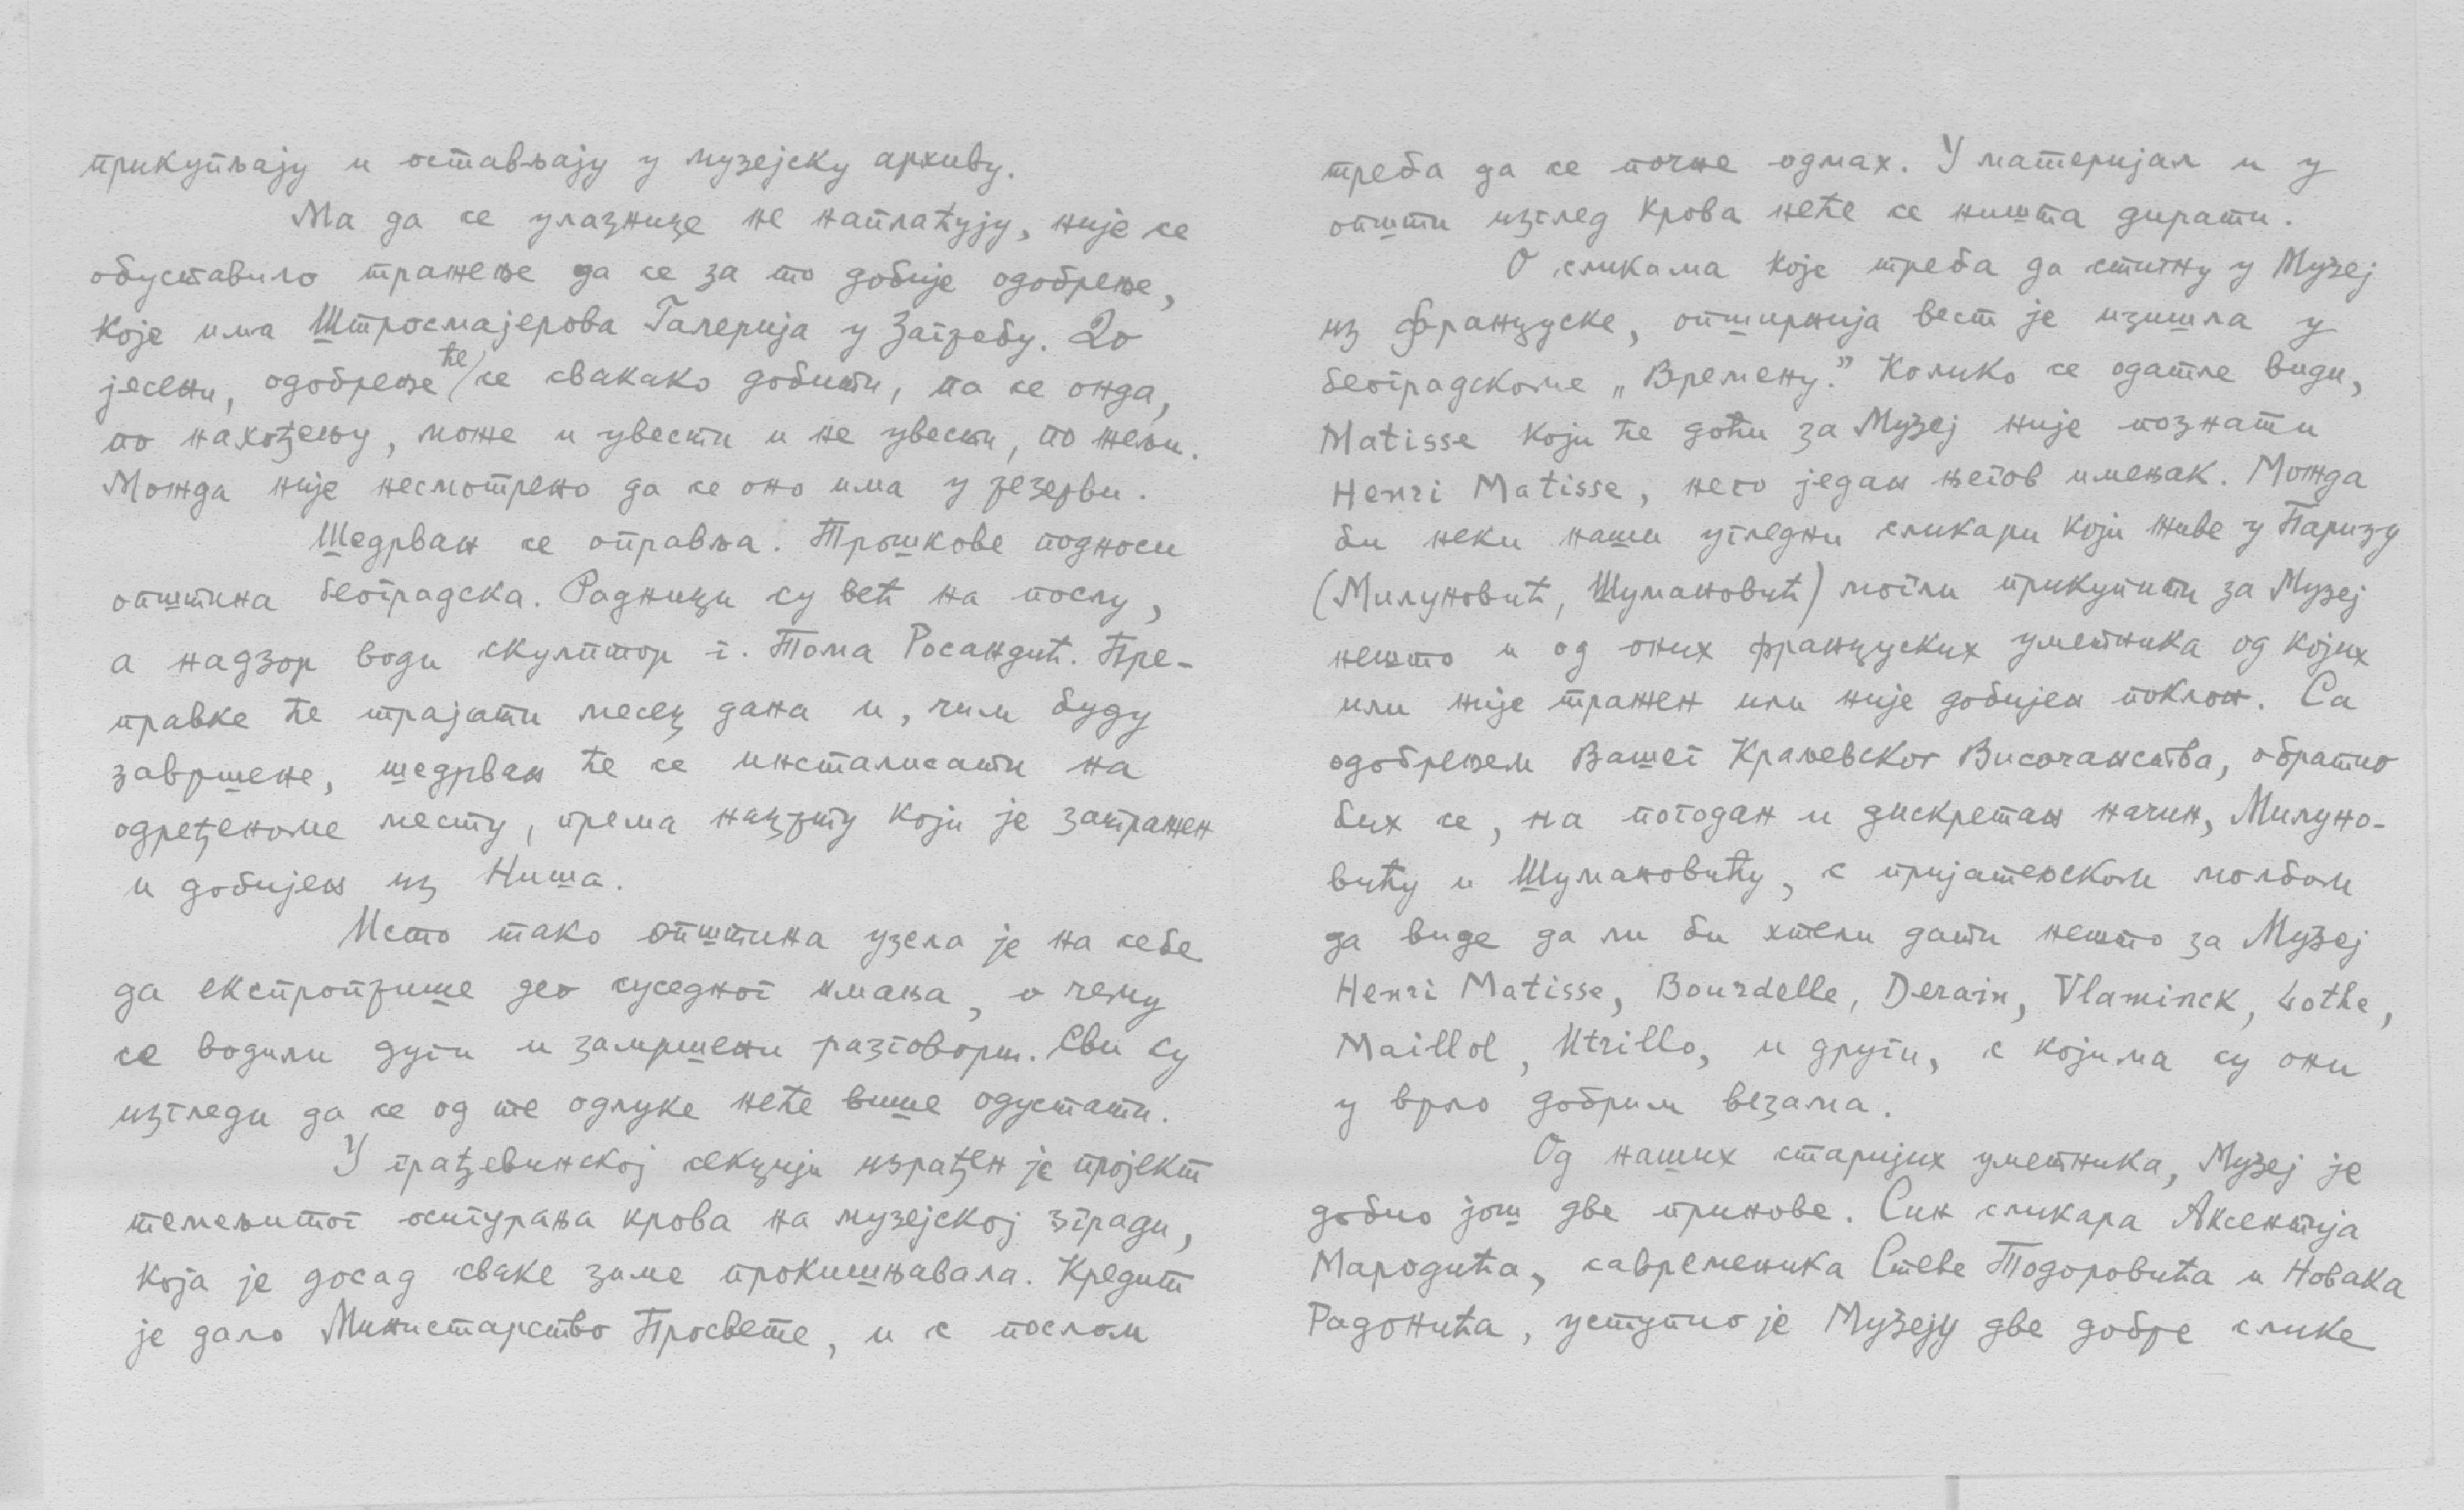 прикупљају и остављају у музејску архиву.
Ма да се улазнице не наплаћују, није се
обуставило тражење да се за то добије одобрење,
које има Штросмајерова Галерија у Загребу. До
јесени, одобрење ће се свакако добити, па се онда,
по нахођењу, може и увести и не увести, по жељи.
Можда није несмотрено да се оно има у резерви.
Шедрван се оправља. Трошкове подноси
општина београдска. Радници су већ на послу,
а надзор води скулптор г. Тома Росандић. Пре-
правке ће трајати месец дана и, чим буду
завршене, шедрван ће се инсталисати на
одређеноме месту, према нацрту који је затражен
и добијен из Ниша.
Исто тако општина узела је на себе
да експроприше део суседног имања, о чему
се водили дуги и замршени разговори. Сви су
изгледи да се од те одлуке неће више одустати.
У грађевинској секцији израђен је пројект
темељитог осигурања крова на музејској згради,
која је досад сваке зиме прокишњавала. Кредит
је дало Министарство Просвете, и с послом
треба да се почне одмах. У материјал и у
општи изглед крова неће се ништа дирати.
О сликама које треба да стигну у Музеј
из Француске, опширнија вест је изишла у
београдскоме „Времену.” Колико се одатле види,
Matisse који ће доћи за Музеј није познати
Henri Matisse, него један његов имењак. Можда
би неки наши угледни сликари који живе у Паризу
(Милуновић, Шумановић) могли прикупити за Музеј
нешто и од оних француских уметника од којих
или није тражен или није добијен поклон. Са
одобрењем Вашег Краљевског Височанства, обратио
бих се, на погодан и дискретан начин, Милуно-
вићу и Шумановићу, с пријатељском молбом
да виде да ли би хтели дати нешто за Музеј
Henri Matisse, Bourdelle, Derain, Vlaminck, Lothe,
Maillol, Utrillo, и други, с којима су они
у врло добрим везама.
Од наших старијих уметника, Музеј је
добио још две принове. Син сликара Аксентија
Мародића, савременика Стеве Тодоровића и Новака
Радонића, уступио је Музеју две добре слике